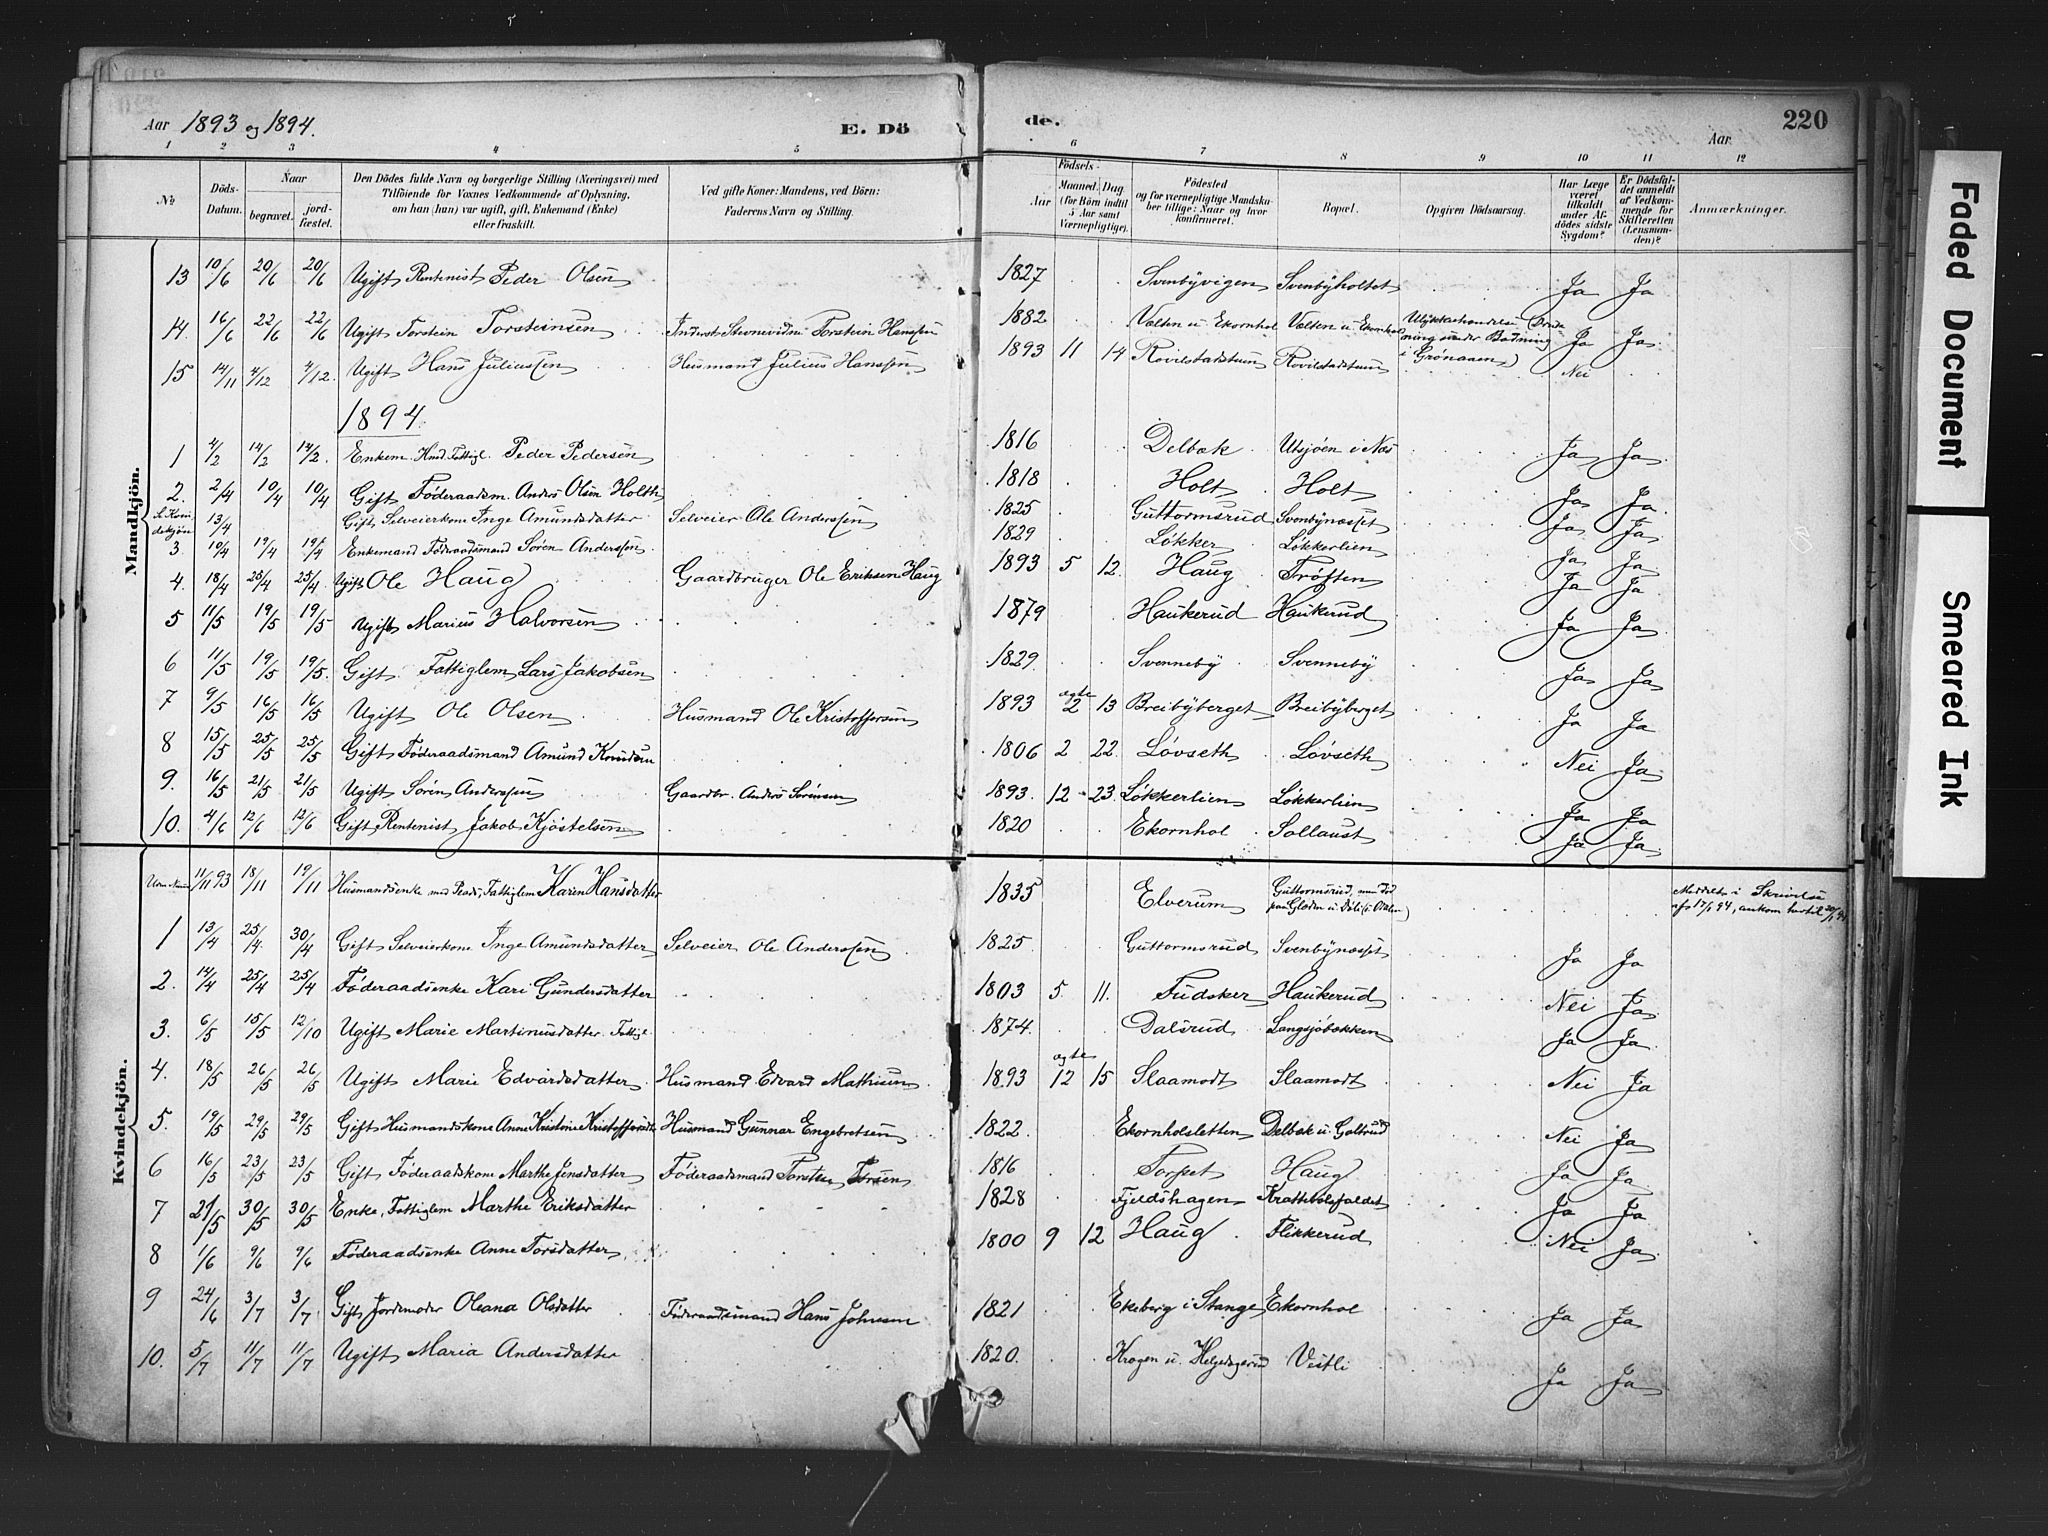 Aar 1893 og 1894.
E. Dö
de.
Aar
220
1 2 3 4 5 6 7 8 9 10 11 12
№
Döds-Datum.
Naar
begravet.
jordfæstet.
Den Dödes fulde Navn og borgerlige Stilling (Næringsvei) med
Tilföiende for Voxnes Vedkommende af Oplysning,
om han (hun) var ugift, gift, Enkemand (Enke)
eller fraskilt.
Ved gifte Koner: Mandens, ved Börn:
Faderens Navn og Stilling.
Födsels-
Aar
Maaned. Dag
(for Börn indtil
5 Aar samt
Værnepligtige).
Födested
og for værnepligtige Mandska-
ber tillige: Naar og hvor
konfirmeret.
Bopæl.
Opgiven Dödsaarsag.
Har Læge
været
tilkaldt
under Af-
dödes sidste
Sygdom?
Er Dödsfal-
det anmeldt
af Vedkom-
mende for
Skifteretten
(Lensman-
den)?
Anmærkninger.
Mandkjön.
13 10/6 20/6 20/6 Ugift Rentenist Peder Olsen 1827 Svenbyvigen Svenbyholtet Ja Ja
14. 16/6 22/6 22/6 Ugift Torstein Torsteinsen Torstein Hansen 1882 Valten u. Ekornhol Valten u. Ekornhol Ulykkeshændelse (Drukning under Badning i Grønaaen) Ja Ja
15 14/11 4/12 4/12. Ugift Hans Juliussen Husmand Julius Hansen 1893 11 14 Rovilstadstuen Rovilstadstuen Nei
1894.
1 4/2 14/2 14/2. Enkem. Hmd. Fattigl. Peder Pedersen 1816 Delbæk Utsjøen i Næs Ja Ja
2. 2/4 10/4 10/4 Gift Føderaadsm. Anders Olsen Holth 1818 Holt Holt Ja Ja
S. Kvindekjøn 13/4 Gift Selveierkone Inge Amundsdatter Selveier Ole Anderssen 1825 Guttormsrud Svenbynæsset Ja Ja
3. 10/4 19/4 19/4 Enkemand Føderaadsmand Søren Anderssen 1829 Løkker Løkkerlien Ja Ja
4. 18/4 25/4 25/4 Ugift Ole Haug Gaardbruger Ole Eriksen Haug 1893 5 12. Haug Trøften Ja Ja
5 11/5 19/5 19/5 Ugift Marius Halvorsen 1879 Haukerud Haukerud Ja Ja
6 11/5 19/5 19/5 Gift Fattiglem Lars Jakobsen 1829. Svenneby Svenneby Ja Ja
7 9/5 16/5 16/5 Ugift Ole Olsen Husmand Ole Kristoffersen 1893 ægte 2 13 Breibyberget Breibyberget Ja Ja
8 15/5 25/5 25/5 Gift Føderaadsmand Amund Knudsen 1806 2 22. Løvseth Løvseth Nei Ja
9. 16/5 21/5 21/5 Ugift Søren Anderssen Gaardbr. Anders Sørensen 1893. 12 23. Løkkerlien Løkkerlien Ja Ja
10. 4/6 12/6 12/6 Gift Rentenist Jakob Kjøstelsen 1820 Ekornhol Sollaust Ja Ja
Kvindekjön.
Uden Numer 11/11 93 18/11 19/11 Husmandsenke med Plads, Fattiglem Karen Hansdatter 1835 Elverum Guttormsrud, men død paa Meddelt i Skrivelse af 17/1 94, ankom hertil 20/1 94
1 13/4 25/4. 30/4 Gift Selveierkone Inge Amundsdatter Selveier Ole Anderssen 1825 Guttormsrud Svenbynæsset Ja Ja
2. 14/4 25/4 25/4 Føderaadsenke Kari Gundersdatter 1803 5. 11. Fudsker Haukerud Nei Ja
3. 6/5 15/5 12/10 Ugift Marie Martinusdatter. Fattigl 1874. Dalsrud Langsjøbakken Ja Ja
4. 18/5 26/5 26/5 Ugift Marie Edvardsdatter Husmand Edvard Mathisen 1893 ægte 12 15 Slaamodt Slaamodt Nei Ja
5. 19/5 29/5 29/5 Gift Husmandskone Anne Kristine Kristoffersdtr Husmand Gunnar Engebretsen 1822. Ekornholsletten Delbæk u. Goltrud Nei Ja
6 16/5 23/5 23/5 Gift Føderaadskone Marthe Jensdatter Føderaadsmand Torsten Torsen 1816 Torpet Haug Ja Ja
7 21/5 30/5 30/5 Enke, Fattiglem Marthe Eriksdatter 1828 Fjeldshagen Krattebølsfaldet Ja Ja
8 1/6 9/6 9/6 Føderaadsenke Anne Torsdatter 1800 9 12 Haug Flikkerud Nei Ja
9 24/6 3/7 3/7 Gift Jordemoder Oleana Olsdatter Føderaadsmand Hans Johnsen 1821 Ekeberg i Stange Ekornhol Ja Ja
10. 5/7 11/7 11/7 Ugift Maria Andersdatter 1820. Krogen u. Helgedagsrud Vestli Ja Ja
Faded Document
Smeared Ink